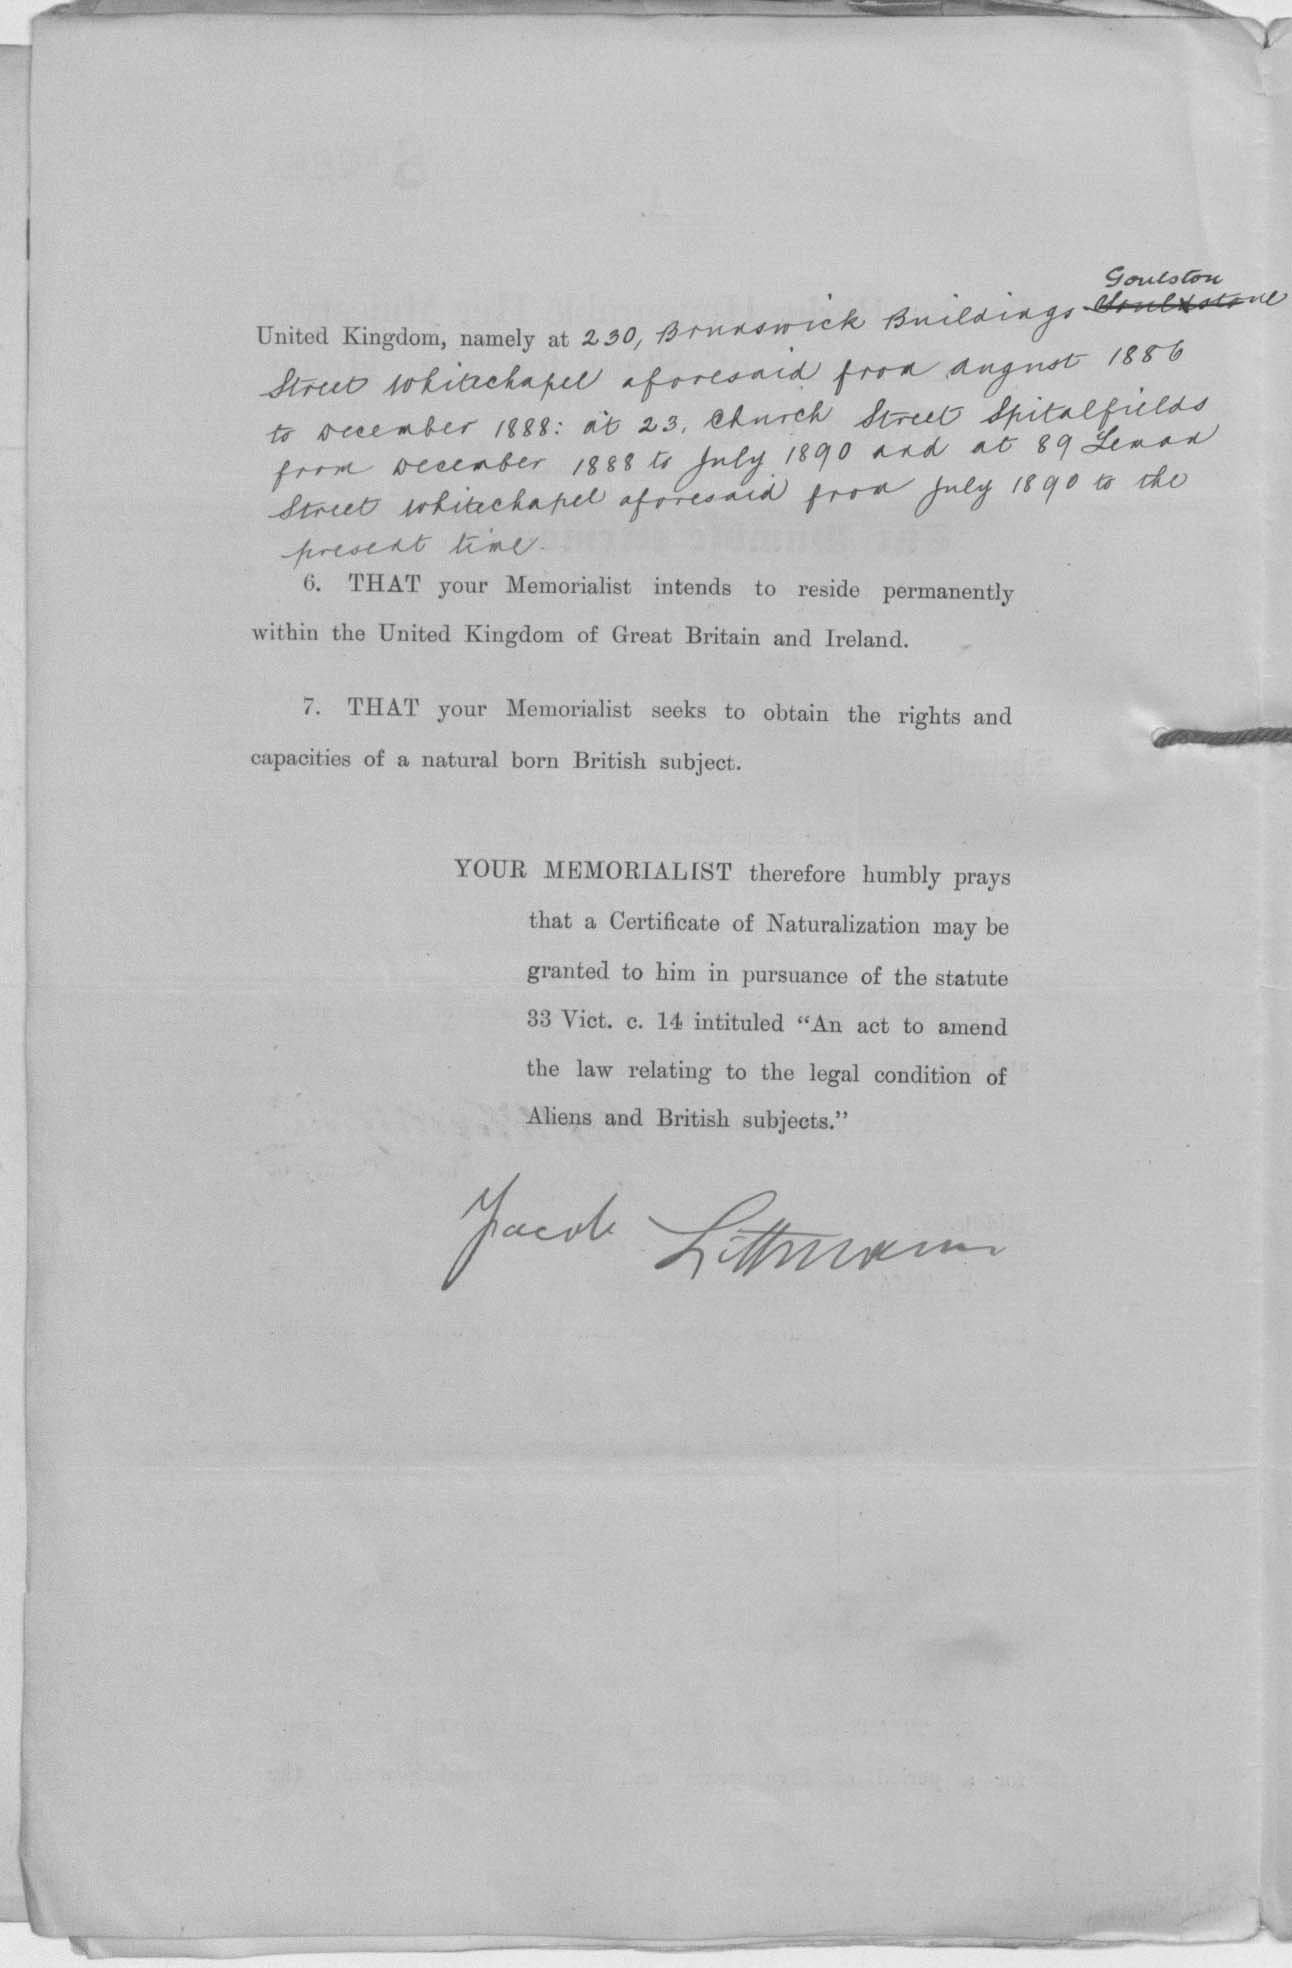 Goulston
United Kingdom, namely at 230, Brunswick Buildings
Street Whitechapel aforesaid from August 1886
to December 1888: at 23, Church Street Spitalfields
from December 1888 to July 1890 and at 89 Leman
Street Whitechapel aforesaid from July 1890 to the
present time.
6. THAT your Memorialist intends to reside permanently
within the United Kingdom of Great Britain and Ireland.
7. THAT your Memorialist seeks to obtain the rights and
capacities of a natural born British subject.
YOUR MEMORIALIST therefore humbly prays
that a Certificate of Naturalization may be
granted to him in pursuance of the statute
33 Vict. c. 14 intituled “An act to amend
the law relating to the legal condition of
Aliens and British subjects.”
Jacob Littmann